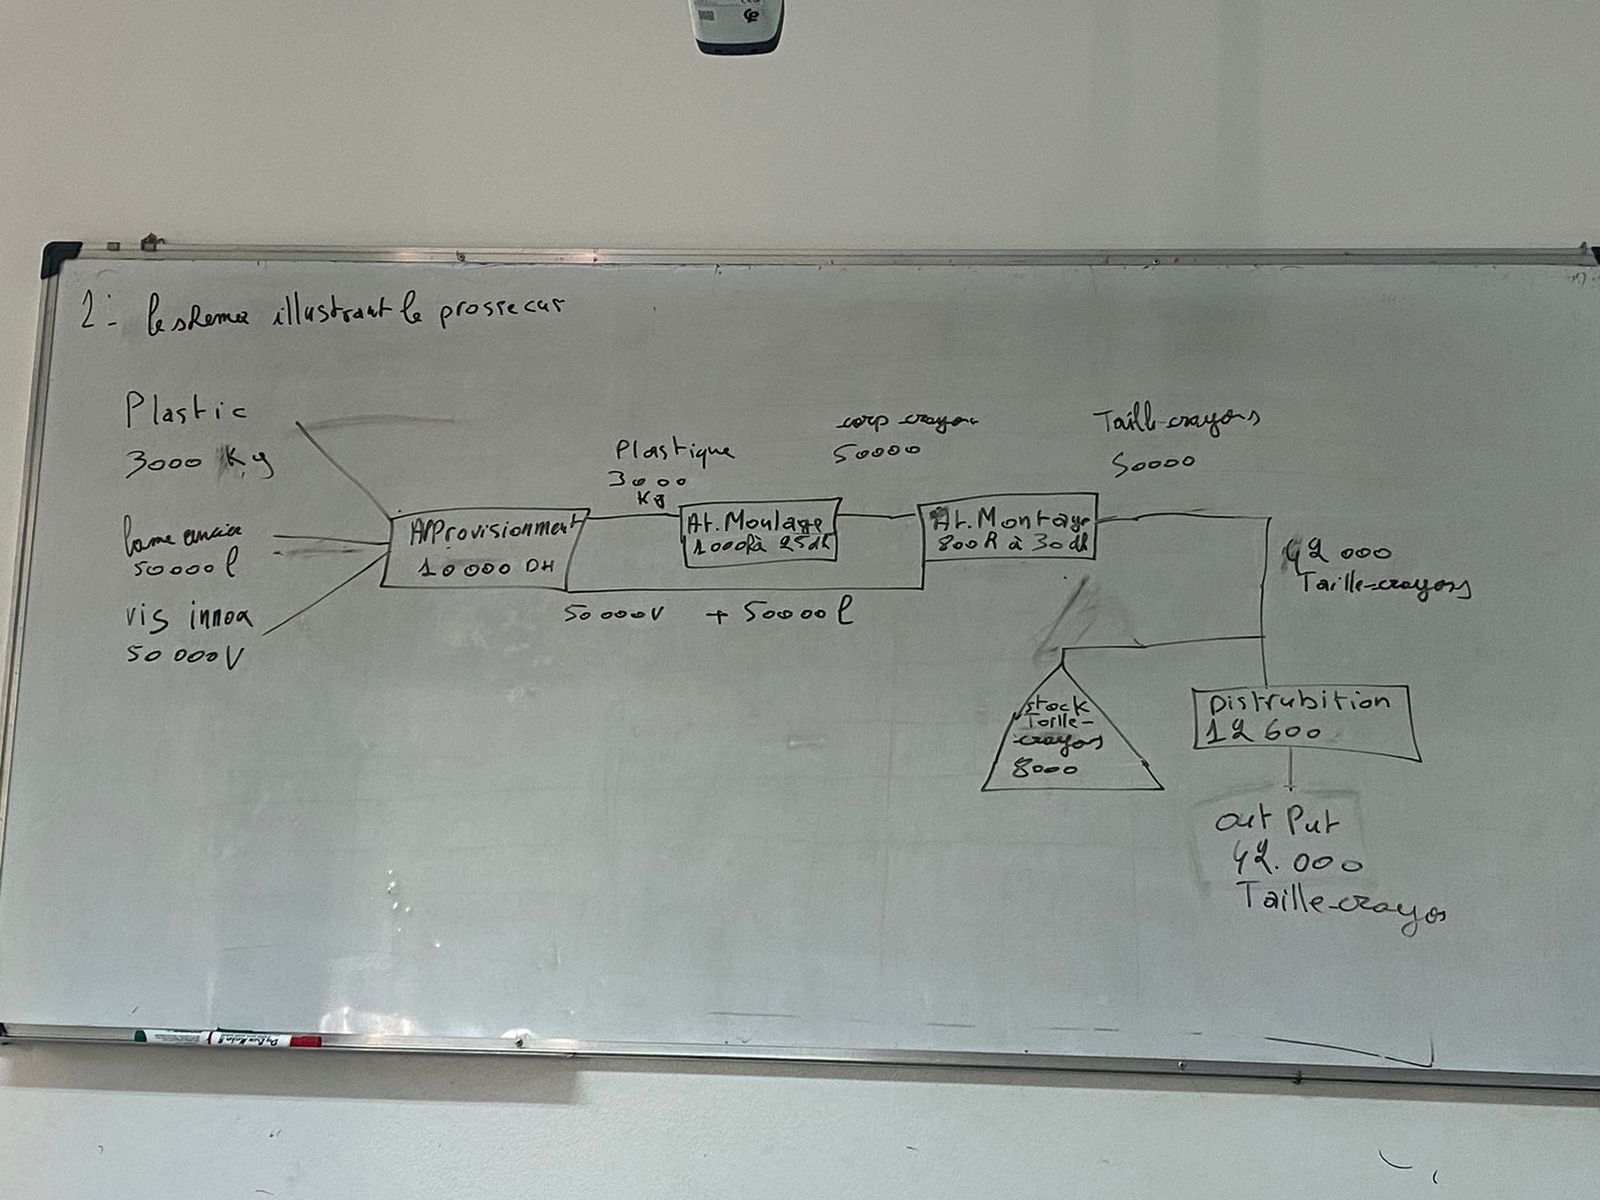 2- le shema illustrant le prossecus
Plastic
3000 Kg
lame acier
50000 l
vis innox
50 000V
APProvisionment
10 000 DH
Plastique
3000
Kg
At. Moulage
1000h à 25dh
corp crayon
50000
At. Montage
800h à 30dh
50 000V + 50000 l
Taille-crayons
50000
42 000
Taille-crayons
stock
Taille-
crayons
8000
Distrubition
12 600
out Put
42.000
Taille-crayos